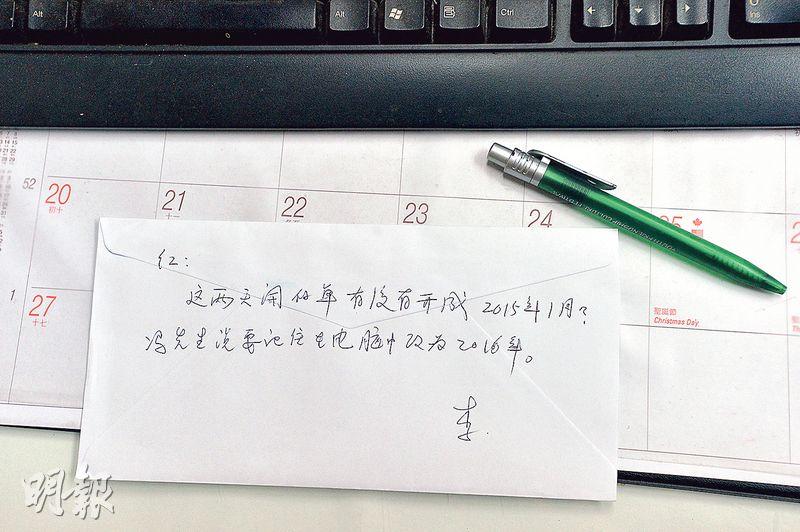 Alt
Alt
Ctrl
Ins
52
20
初十
21
十一
22
23
24
25
聖誕節
Christmas Day
1
27
十七
红：
这两天開的单有没有开成 2015年1月？
冯先生说要记住在电脑中改为2016年。
李.
明報